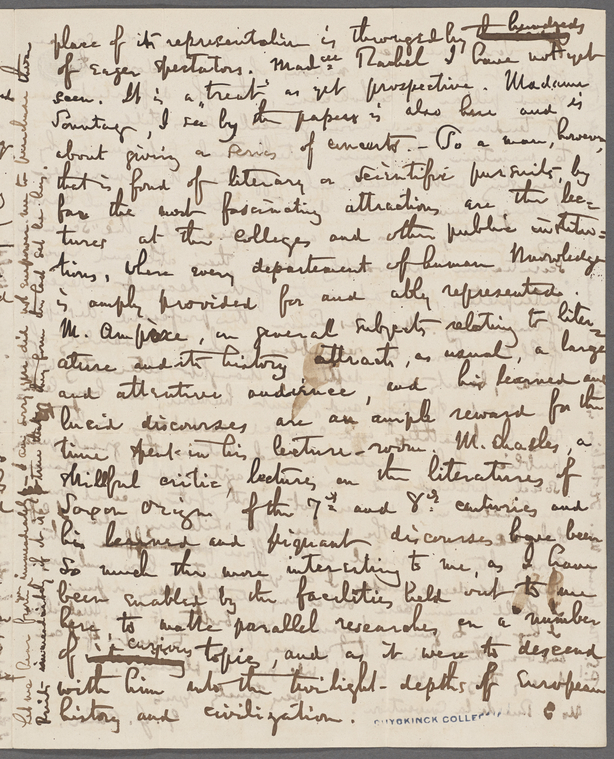 place of its representation is thronged by hundreds
of eager spectators. Mad^lle Rachel I have not yet
seen. It is a "treat" as yet prospective. Madame
Sonntag, I see by the papers is also here and is
about giving a series of concerts. – To a man, however,
that is fond of literary or scientific pursuits, by
far the most fascinating attractions are the lec=
tures at the Colleges and other public institu=
tions, where every departement of human Knowledge
is amply provided for and ably represented.
M. Ampère, on general subjects relating to liter=
ature and its history attracts, as usual, a large
and attentive audience, and his learned and
lucid discourses are an ample reward for the
time spent in his lecture-room. M. Chasles, a
skillful critic, lectures on the literatures of
Saxon origin of the 7th and 8th centuries and
his learned and piquant discourses have been
so much the more interesting to me, as I have
been enabled by the facilities held out to me
here, to make parallel researches on a number
of curious topics, and as it were to descend
with him into the twilight-depths of European
history and civilization.
DUYCKINCK COLLEC
Let me hear from you immediately. I am sorry you did not empower me to purchase them